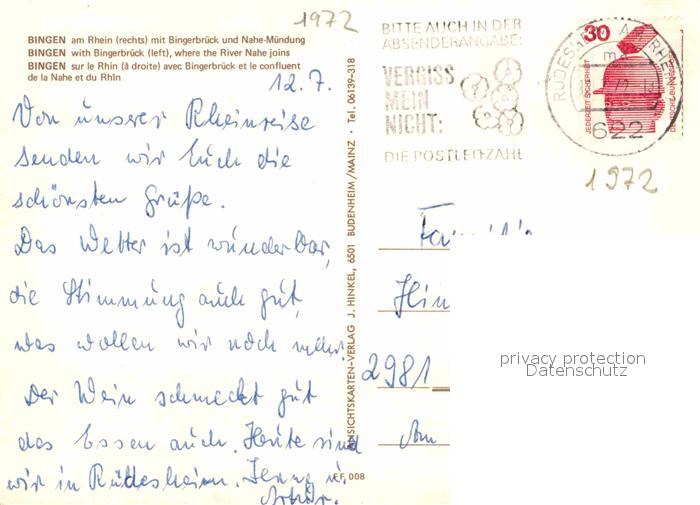 1972
BINGEN am Rhein (rechts) mit Bingerbrück und Nahe-Mündung
BINGEN with Bingerbrück (left), where the River Nahe joins
BINGEN sur le Rhin (à droite) avec Bingerbrück et le confluent
de la Nahe et du Rhin
12.7.
Von unserer Rheinreise
senden wir Euch die
schönsten Grüße.
Das Wetter ist wunderbar,
die Stimmung auch gut,
was wollen wir noch mehr.
Der Wein schmeckt gut
das Essen auch. Heute sind
wir in Rüdesheim. Jenny u.
Arthur.
ANSICHTSKARTEN-VERLAG J. HINKEL, 6501 BUDENHEIM/MAINZ · Tel. 06139-318
EF 008
BITTE AUCH IN DER
ABSENDERANGABE:
VERGISS
MEIN
NICHT:
DIE POSTLEITZAHL
RÜDESHEIM AM RHEIN
622
30
JEDERZEIT SICHERHEIT
DEUTSCHE BUNDESPOST
1972
Familie
Hin
2981
Am
privacy protection
Datenschutz